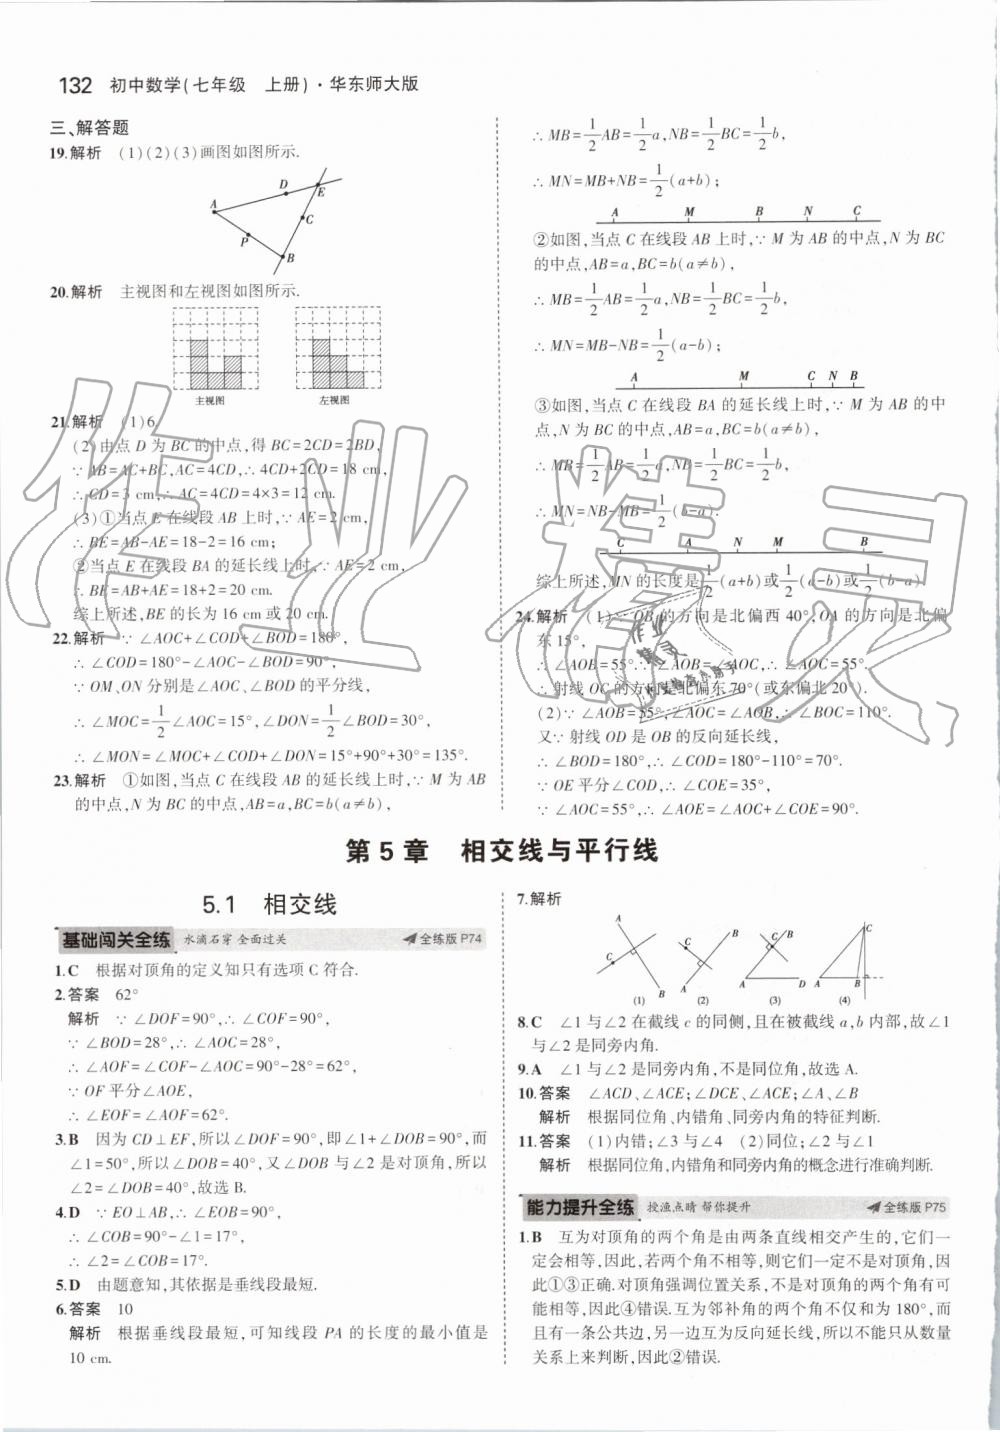 132 初中数学(七年级 上册)·华东师大版
三、解答题
19.解析 (1)(2)(3)画图如图所示.
D
E
A
C
P
B
20.解析 主视图和左视图如图所示.
主视图 左视图
21.解析 (1)6.
(2)由点 D 为 BC 的中点,得 BC=2CD=2BD,
∵ AB=AC+BC,AC=4CD,∴ 4CD+2CD=18 cm,
∴ CD=3 cm,∴ AC=4CD=4×3=12 cm.
(3)①当点 E 在线段 AB 上时,∵ AE=2 cm,
∴ BE=AB-AE=18-2=16 cm;
②当点 E 在线段 BA 的延长线上时,∵ AE=2 cm,
∴ BE=AB+AE=18+2=20 cm.
综上所述,BE 的长为 16 cm 或 20 cm.
22.解析 ∵ ∠AOC+∠COD+∠BOD=180°,
∴ ∠COD=180°-∠AOC-∠BOD=90°,
∵ OM、ON 分别是∠AOC、∠BOD 的平分线,
∴ ∠MOC=1/2∠AOC=15°,∠DON=1/2∠BOD=30°,
∴ ∠MON=∠MOC+∠COD+∠DON=15°+90°+30°=135°.
23.解析 ①如图,当点 C 在线段 AB 的延长线上时,∵ M 为 AB
的中点,N 为 BC 的中点,AB=a,BC=b(a≠b),
∴ MB=1/2AB=1/2a,NB=1/2BC=1/2b,
∴ MN=MB+NB=1/2(a+b);
A M B N C
②如图,当点 C 在线段 AB 上时,∵ M 为 AB 的中点,N 为 BC
的中点,AB=a,BC=b(a≠b),
∴ MB=1/2AB=1/2a,NB=1/2BC=1/2b,
∴ MN=MB-NB=1/2(a-b);
A M C N B
③如图,当点 C 在线段 BA 的延长线上时,∵ M 为 AB 的中
点,N 为 BC 的中点,AB=a,BC=b(a≠b),
∴ MB=1/2AB=1/2a,NB=1/2BC=1/2b,
∴ MN=NB-MB=1/2(b-a).
C A N M B
综上所述,MN 的长度是1/2(a+b)或1/2(a-b)或1/2(b-a).
24.解析 (1)∵ OB 的方向是北偏西 40°,OA 的方向是北偏
东 15°,
∴ ∠AOB=55°.∵ ∠AOB=∠AOC,∴ ∠AOC=55°.
∴ 射线 OC 的方向是北偏东 70°(或东偏北 20°).
(2)∵ ∠AOB=55°,∠AOC=∠AOB,∴ ∠BOC=110°.
又∵ 射线 OD 是 OB 的反向延长线,
∴ ∠BOD=180°,∴ ∠COD=180°-110°=70°.
∵ OE 平分∠COD,∴ ∠COE=35°,
∵ ∠AOC=55°,∴ ∠AOE=∠AOC+∠COE=90°.
作业精灵
作业
精灵
第 5 章 相交线与平行线
5.1 相交线
基础闯关全练 水滴石穿 全面过关 全练版 P74
1.C 根据对顶角的定义知只有选项 C 符合.
2.答案 62°
解析 ∵ ∠DOF=90°,∴ ∠COF=90°,
∵ ∠BOD=28°,∴ ∠AOC=28°,
∴ ∠AOF=∠COF-∠AOC=90°-28°=62°,
∵ OF 平分∠AOE,
∴ ∠EOF=∠AOF=62°.
3.B 因为 CD⊥EF,所以∠DOF=90°,即∠1+∠DOB=90°,而
∠1=50°,所以∠DOB=40°,又∠DOB 与∠2 是对顶角,所以
∠2=∠DOB=40°,故选 B.
4.D ∵ EO⊥AB,∴ ∠EOB=90°,
∴ ∠COB=90°-∠1=17°,
∴ ∠2=∠COB=17°.
5.D 由题意知,其依据是垂线段最短.
6.答案 10
解析 根据垂线段最短,可知线段 PA 的长度的最小值是
10 cm.
7.解析
A C B (1)
C B A (2)
C B A D (3)
C A B (4)
8.C ∠1 与∠2 在截线 c 的同侧,且在被截线 a,b 内部,故∠1
与∠2 是同旁内角.
9.A ∠1 与∠2 是同旁内角,不是同位角,故选 A.
10.答案 ∠ACD、∠ACE;∠DCE、∠ACE;∠A、∠B
解析 根据同位角、内错角、同旁内角的特征判断.
11.答案 (1)内错;∠3 与∠4 (2)同位;∠2 与∠1
解析 根据同位角,内错角和同旁内角的概念进行准确判断.
能力提升全练 授渔点睛 帮你提升 全练版 P75
1.B 互为对顶角的两个角是由两条直线相交产生的,它们一
定会相等,因此,若两个角不相等,则它们一定不是对顶角,因
此①③正确.对顶角强调位置关系,不是对顶角的两个角有可
能相等,因此④错误.互为邻补角的两个角不仅和为 180°,而
且有一条公共边,另一边互为反向延长线,所以不能只从数量
关系上来判断,因此②错误.